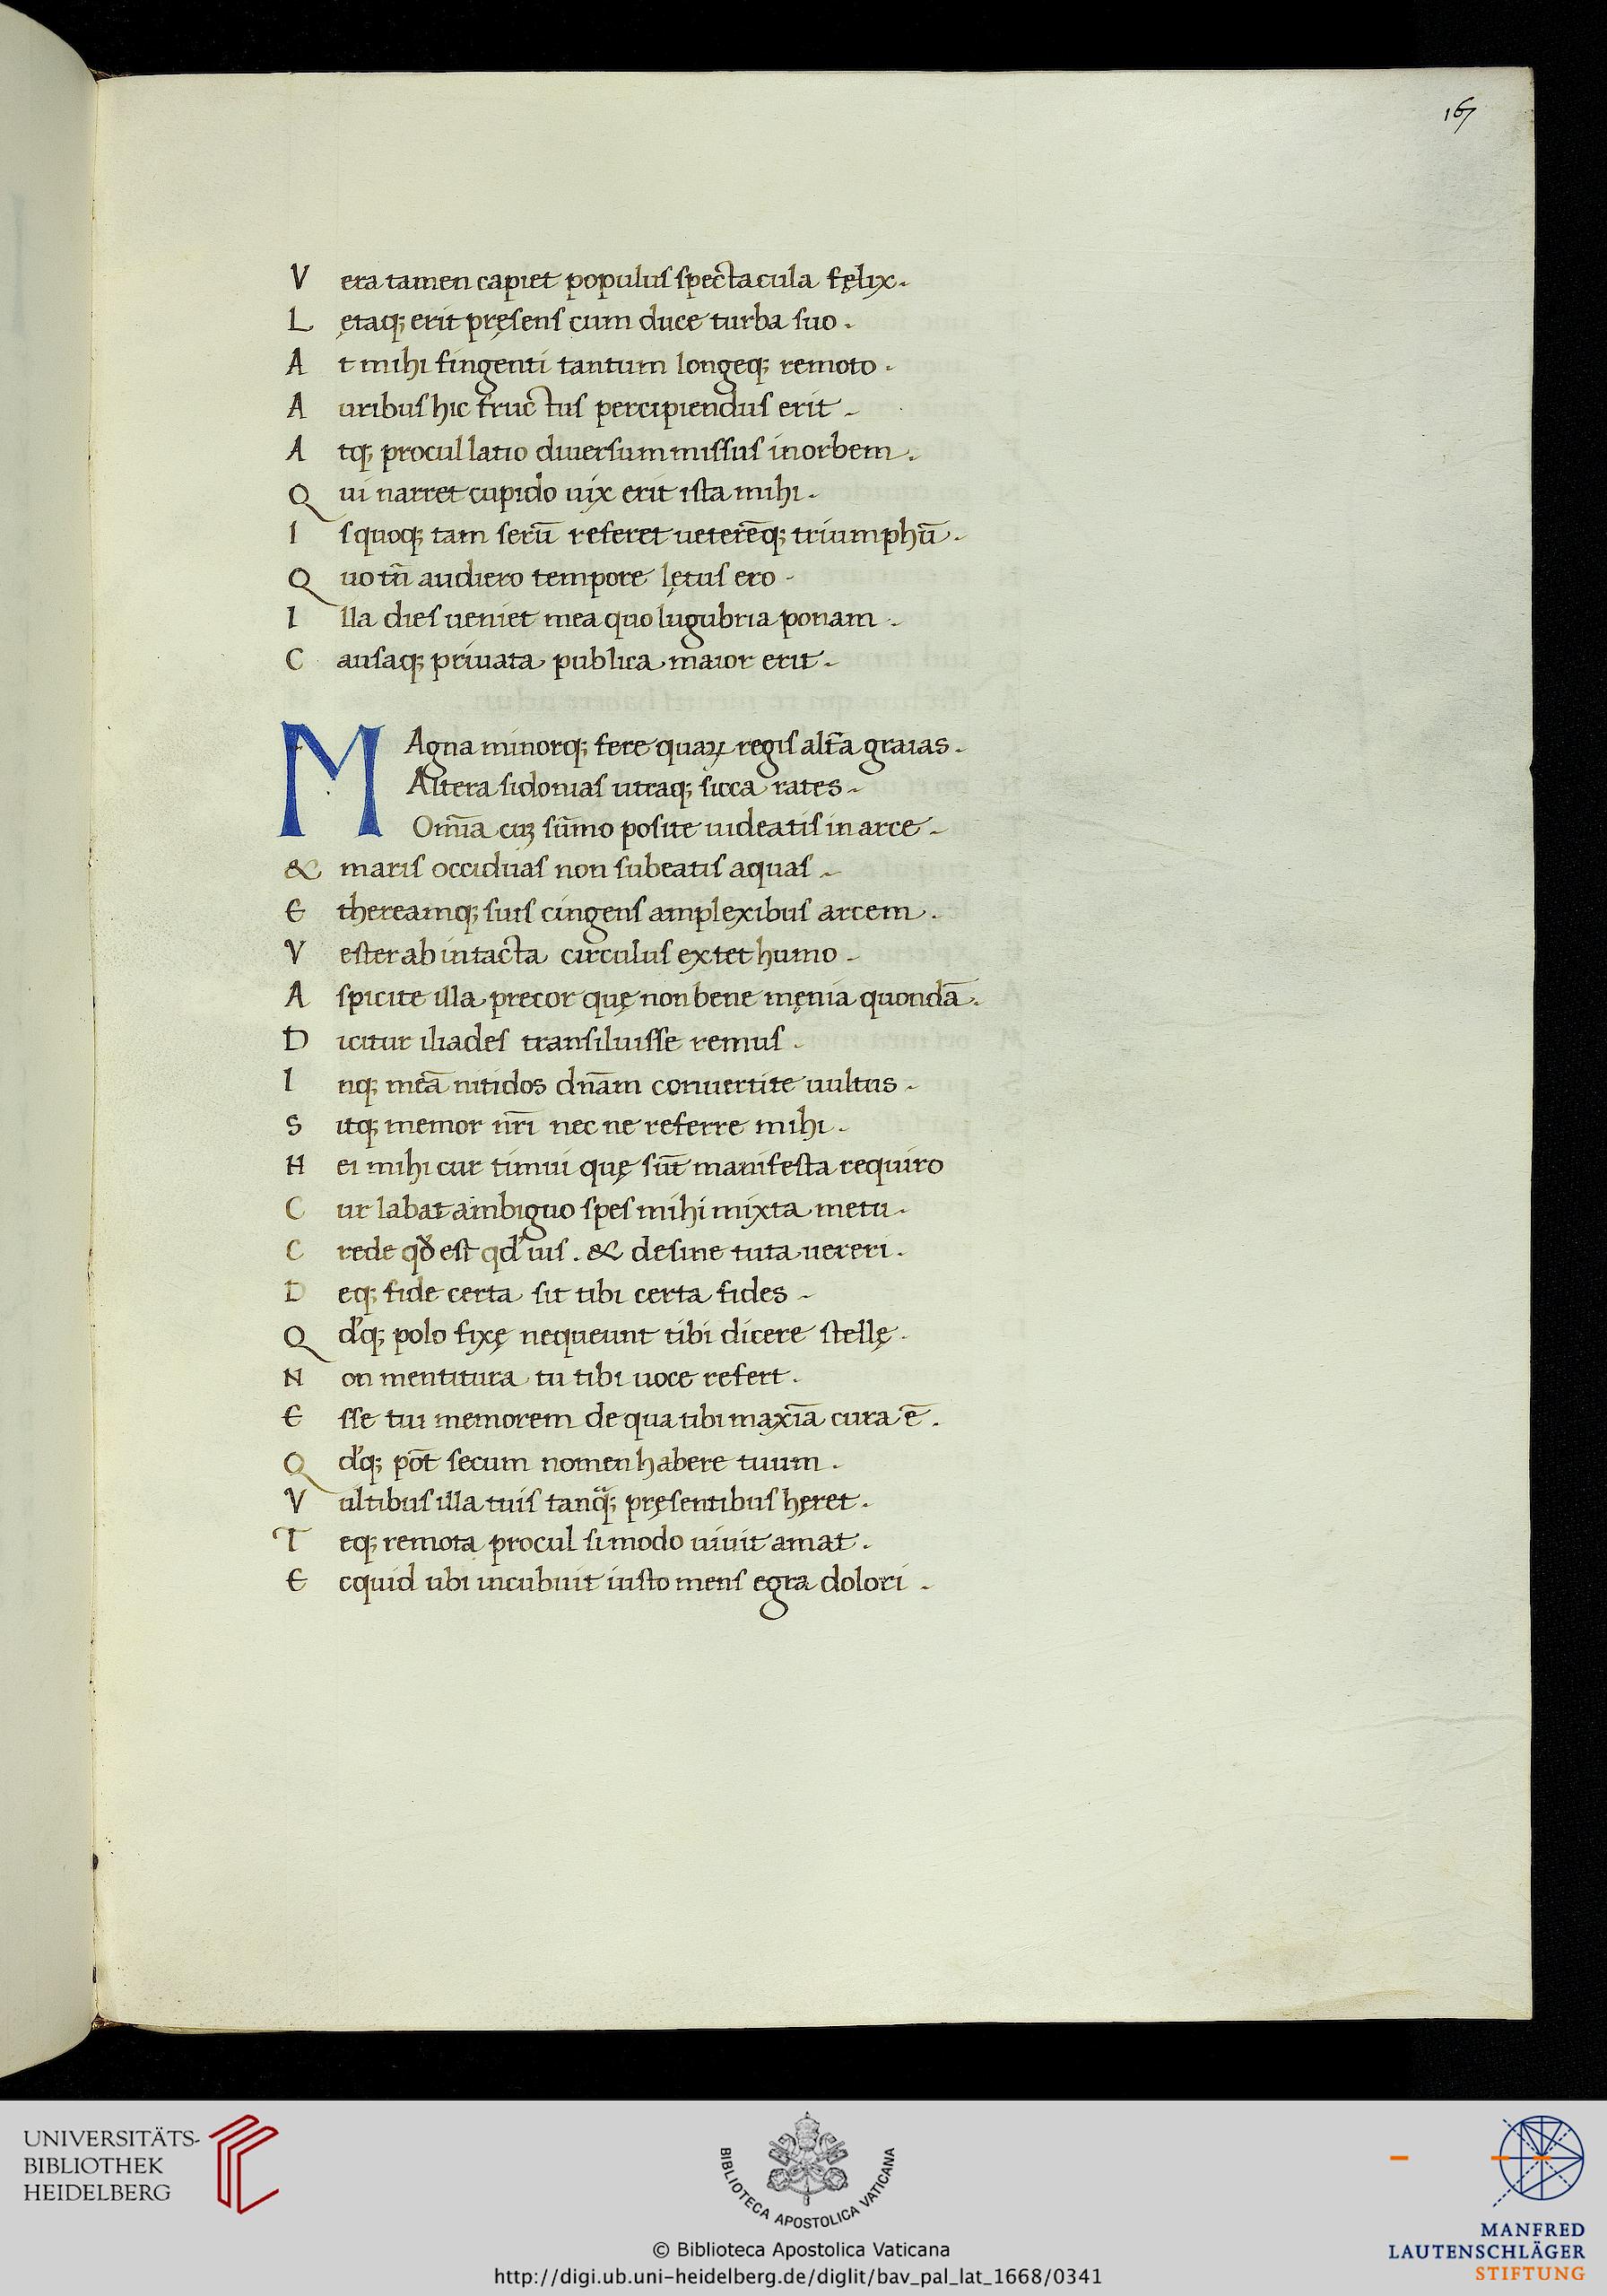 167
V era tamen capiet populus spectacula fęlix.
L ętaq; erit pręsens cum duce turba suo.
A t mihi fingenti tantum longeq; remoto.
A uribus hic fructus percipiendus erit.
A tq; procul latio diuersum missus in orbem.
Q ui narret cupido uix erit ista mihi.
I s quoq; tam serū referet ueterēq; triumphū.
Q uo tn̄ audiero tempore lętus ero.
I lla dies ueniet mea quo lugubria ponam.
C ausaq; priuata publica maior erit.
MAgna minorq; fere quaꝝ regis alt̄a graias.
Altera sidonias utraq; sicca rates.
Om̄ia cuȝ sūmo posite uideatis in arce.
& maris occiduas non subeatis aquas.
E thereamq; suis cingens amplexibus arcem.
V ester ab intacta circulus extet humo.
A spicite illa precor quę non bene męnia quondā.
D icitur iliades transiluisse remus.
I nq; meā nitidos dn̄am conuertite uultus.
S itq; memor nr̄i nec ne referre mihi.
H ei mihi cur timui quę sūt manifesta requiro
C ur labat ambiguo spes mihi mixta metu.
C rede qđ est qd' uis. & desine tuta uereri.
D eq; fide certa sit tibi certa fides.
Q d'q; polo fixę nequeunt tibi dicere stellę.
N on mentitura tu tibi uoce refert.
E sse tui memorem de qua tibi maxīa cura ē.
Q d'q; pōt secum nomen habere tuum.
V ultibus illa tuis tanq̃; pręsentibus hęret.
T eq; remota procul si modo uiuit amat.
E cquid ubi incubuit iusto mens egra dolori.
UNIVERSITÄTS-
BIBLIOTHEK
HEIDELBERG
BIBLIOTECA APOSTOLICA VATICANA
© Biblioteca Apostolica Vaticana
http://digi.ub.uni-heidelberg.de/diglit/bav_pal_lat_1668/0341
MANFRED
LAUTENSCHLÄGER
STIFTUNG